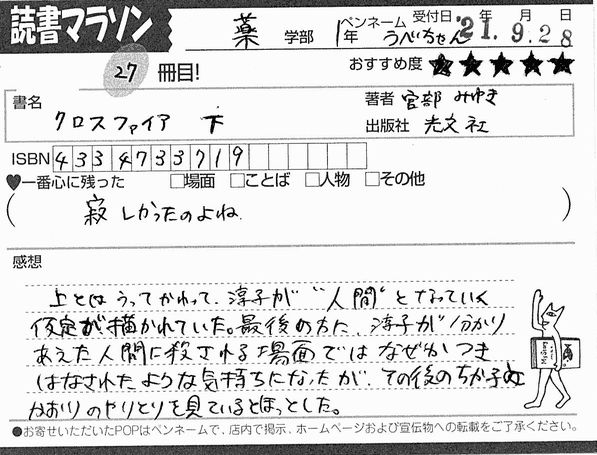 読書マラソン
薬 学部 1年 ペンネーム うべいちゃん 受付日 '21年9月28日
27 冊目!
おすすめ度 ★★★★★
書名 クロスファイア 下
著者 宮部 みゆき
出版社 光文社
ISBN 4334733719
♥一番心に残った □場面 □ことば □人物 □その他
( 寂しかったのよね )
感想
上とはうってかわって、淳子が"人間"となっていく
仮定が描かれていた。最後の方に、淳子が分かり
あえた人間に殺される場面ではなぜかつき
はなされたような気持ちになったが、その後のちか子と
かおりのやりとりを見ているとほっとした。
●お寄せいただいたPOPはペンネームで、店内で掲示、ホームページおよび宣伝物への転載をご了承ください。